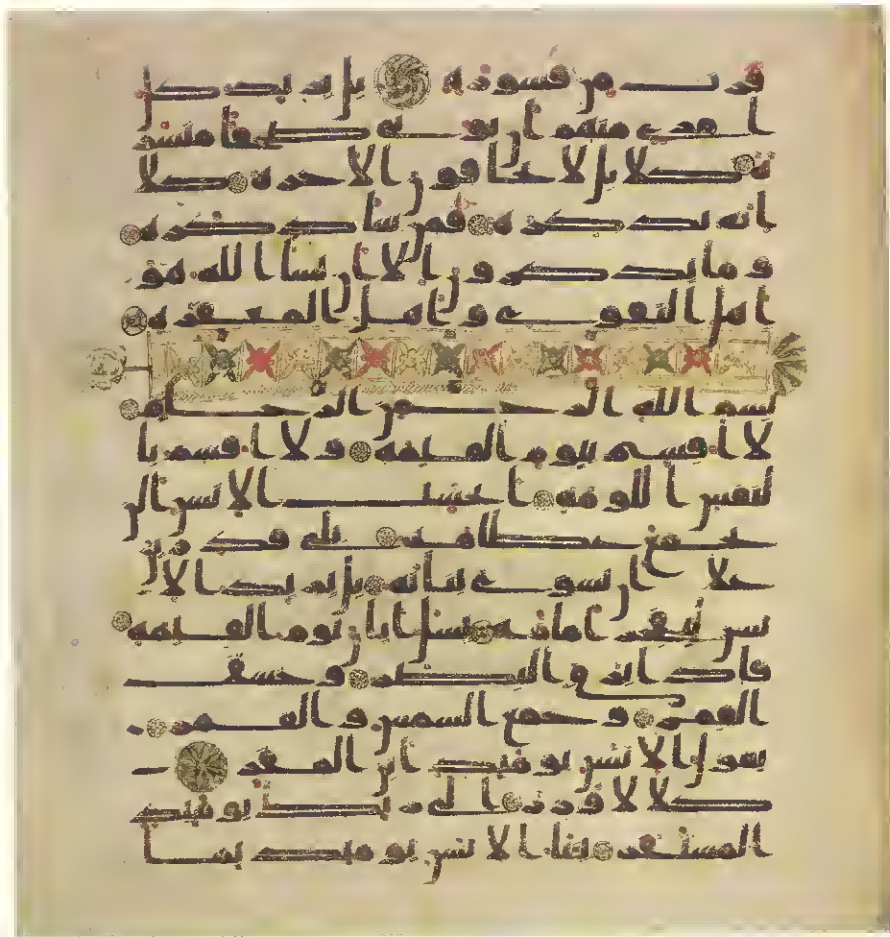 فرت من قسورة بل يريد كل
امرئ منهم ان يؤتى صحفا منشر
ة كلا بل لا يخافون الاخرة كلا
انه تذكرة فمن شا ذكره
وما يذكرون الا ان يشا الله هو
اهل التقوى واهل المغفرة
بسم الله الرحمن الرحيم
لا اقسم بيوم القيمة ولا اقسم با
لنفس اللومة ا يحسب الانسن الن
نجمع عظامه بلى قدرين
على ان نسوى بنانه بل يريد الا
نسن ليفجر امامه يسل ايان يوم القيمة
فاذا برق البصر وخسف
القمر وجمع الشمس والقمر
يقول الانسن يومئذ اين المفر
كلا لا وزر الى ربك يومئذ
المستقر ينبا الانسن يومئذ بما